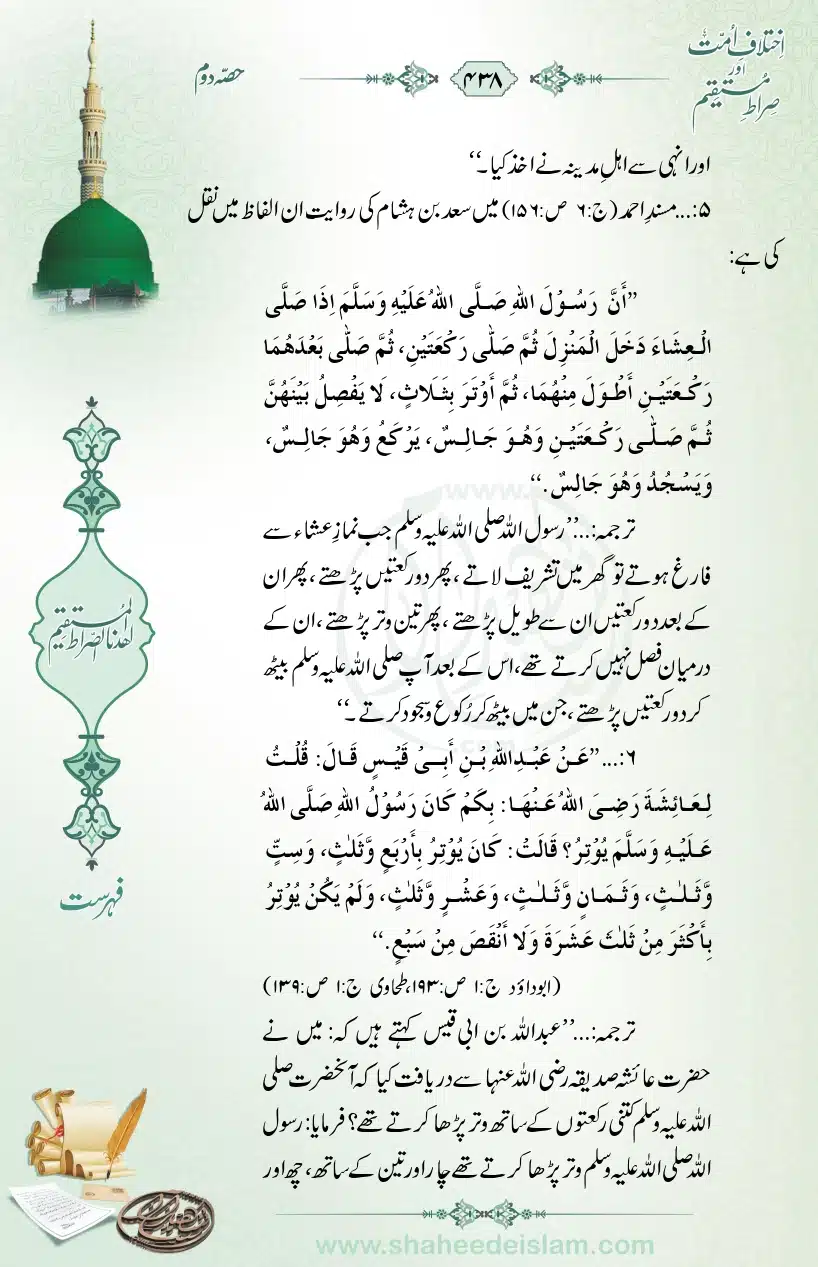 اِختلافِ اُمّت
اور
صراطِ مُستقیم
۴۳۸
حصّہ دوم
اور انہی سے اہلِ مدینہ نے اخذ کیا۔‘‘
۵:...مسندِ احمد (ج:۶ ص:۱۵۶) میں سعد بن ہشام کی روایت ان الفاظ میں نقل
کی ہے:
’’أَنَّ رَسُوْلَ اللهِ صَلَّى اللهُ عَلَيْهِ وَسَلَّمَ اِذَا صَلَّى
الْعِشَاءَ دَخَلَ الْمَنْزِلَ ثُمَّ صَلّٰى رَكْعَتَيْنِ، ثُمَّ صَلّٰى بَعْدَهُمَا
رَكْعَتَيْنِ أَطْوَلَ مِنْهُمَا، ثُمَّ أَوْتَرَ بِثَلَاثٍ، لَا يَفْصِلُ بَيْنَهُنَّ
ثُمَّ صَلّٰى رَكْعَتَيْنِ وَهُوَ جَالِسٌ، يَرْكَعُ وَهُوَ جَالِسٌ،
وَيَسْجُدُ وَهُوَ جَالِسٌ.‘‘
ترجمہ:...’’رسول اللہ صلی اللہ علیہ وسلم جب نمازِ عشاء سے
فارغ ہوتے تو گھر میں تشریف لاتے، پھر دو رکعتیں پڑھتے، پھر ان
کے بعد دو رکعتیں ان سے طویل پڑھتے، پھر تین وتر پڑھتے، ان کے
درمیان فصل نہیں کرتے تھے، اس کے بعد آپ صلی اللہ علیہ وسلم بیٹھ
کر دو رکعتیں پڑھتے، جن میں بیٹھ کر رُکوع و سجود کرتے۔‘‘
۶:...’’عَنْ عَبْدِاللهِ بْنِ أَبِىْ قَيْسٍ قَالَ: قُلْتُ
لِعَائِشَةَ رَضِىَ اللهُ عَنْهَا: بِكَمْ كَانَ رَسُوْلُ اللهِ صَلَّى اللهُ
عَلَيْهِ وَسَلَّمَ يُوْتِرُ؟ قَالَتْ: كَانَ يُوْتِرُ بِأَرْبَعٍ وَّثَلٰثٍ، وَسِتٍّ
وَّثَلٰثٍ، وَثَمَانٍ وَّثَلٰثٍ، وَعَشْرٍ وَّثَلٰثٍ، وَلَمْ يَكُنْ يُوْتِرُ
بِأَكْثَرَ مِنْ ثَلٰثَ عَشَرَةَ وَلَا أَنْقَصَ مِنْ سَبْعٍ.‘‘
(ابوداؤد ج:۱ ص:۱۹۳، طحاوی ج:۱ ص:۱۳۹)
ترجمہ:...’’عبداللہ بن ابی قیس کہتے ہیں کہ: میں نے
حضرت عائشہ صدیقہ رضی اللہ عنہا سے دریافت کیا کہ آنحضرت صلی
اللہ علیہ وسلم کتنی رکعتوں کے ساتھ وتر پڑھا کرتے تھے؟ فرمایا: رسول
اللہ صلی اللہ علیہ وسلم وتر پڑھا کرتے تھے چار اور تین کے ساتھ، چھ اور
اهدنا الصّراط المُستقیم
فہرست
www.shaheedeislam.com